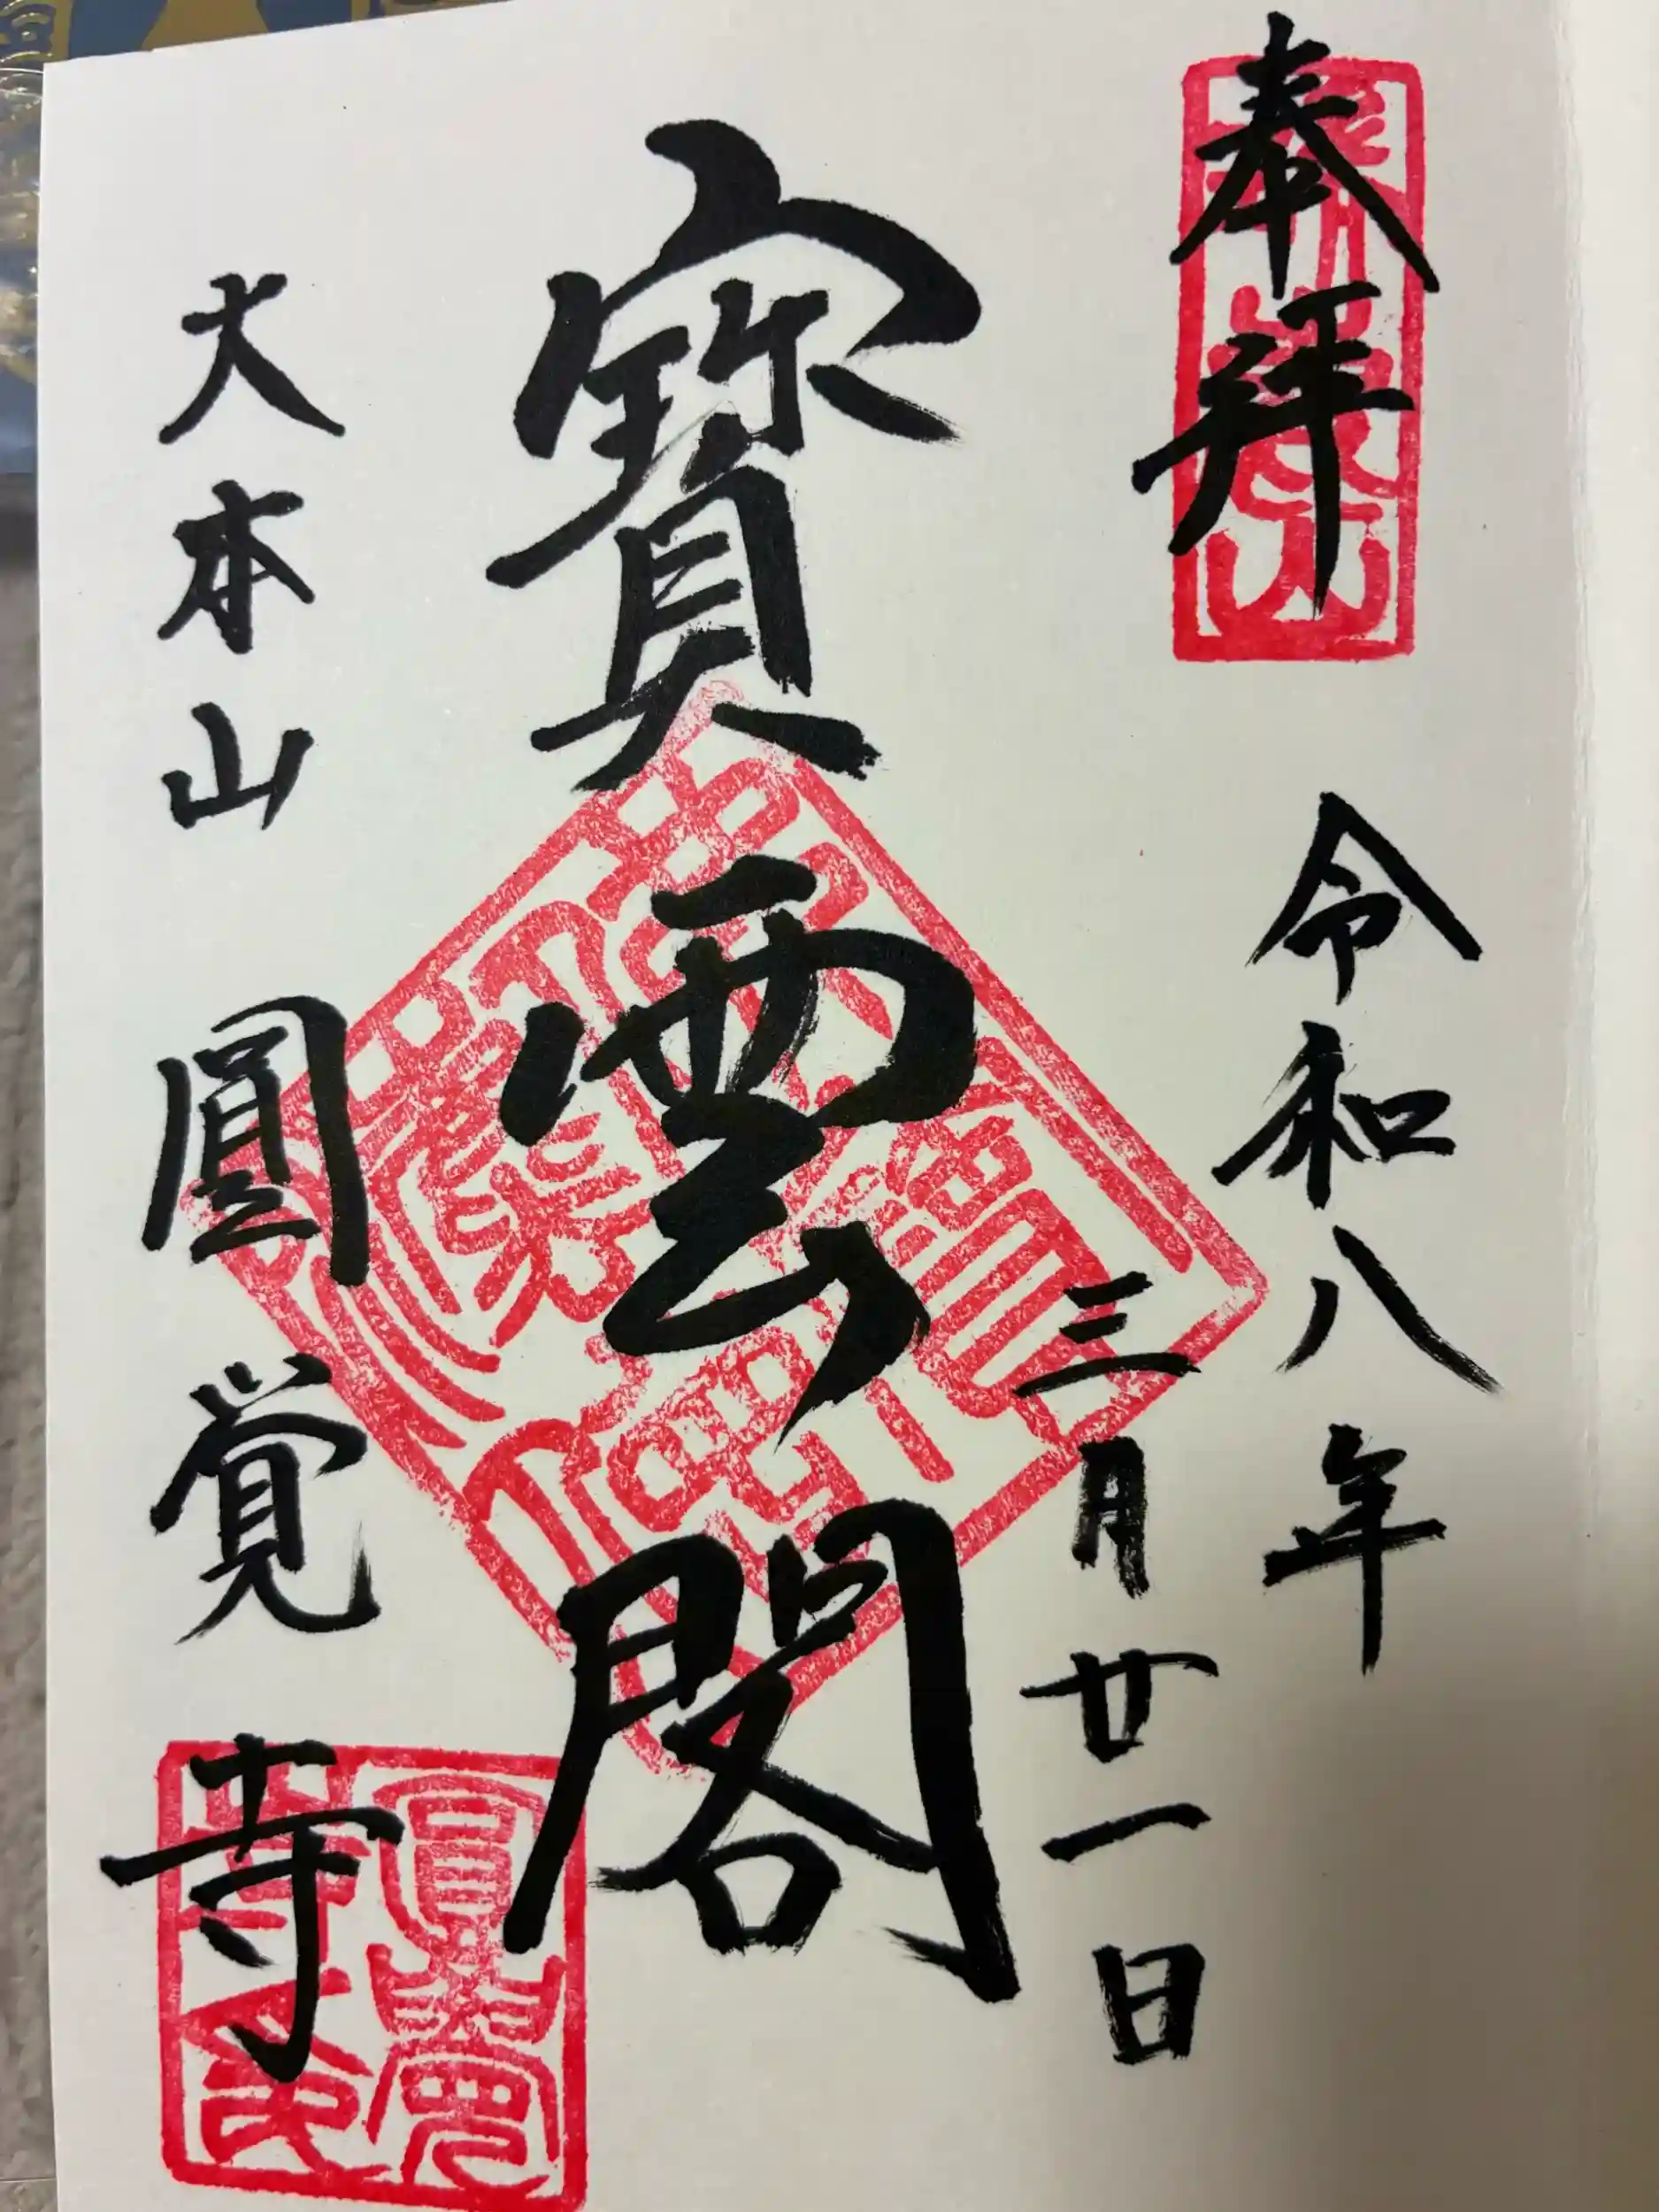 奉拝
令和八年
三月廿一日
寳雲閣
大本山圓覚寺